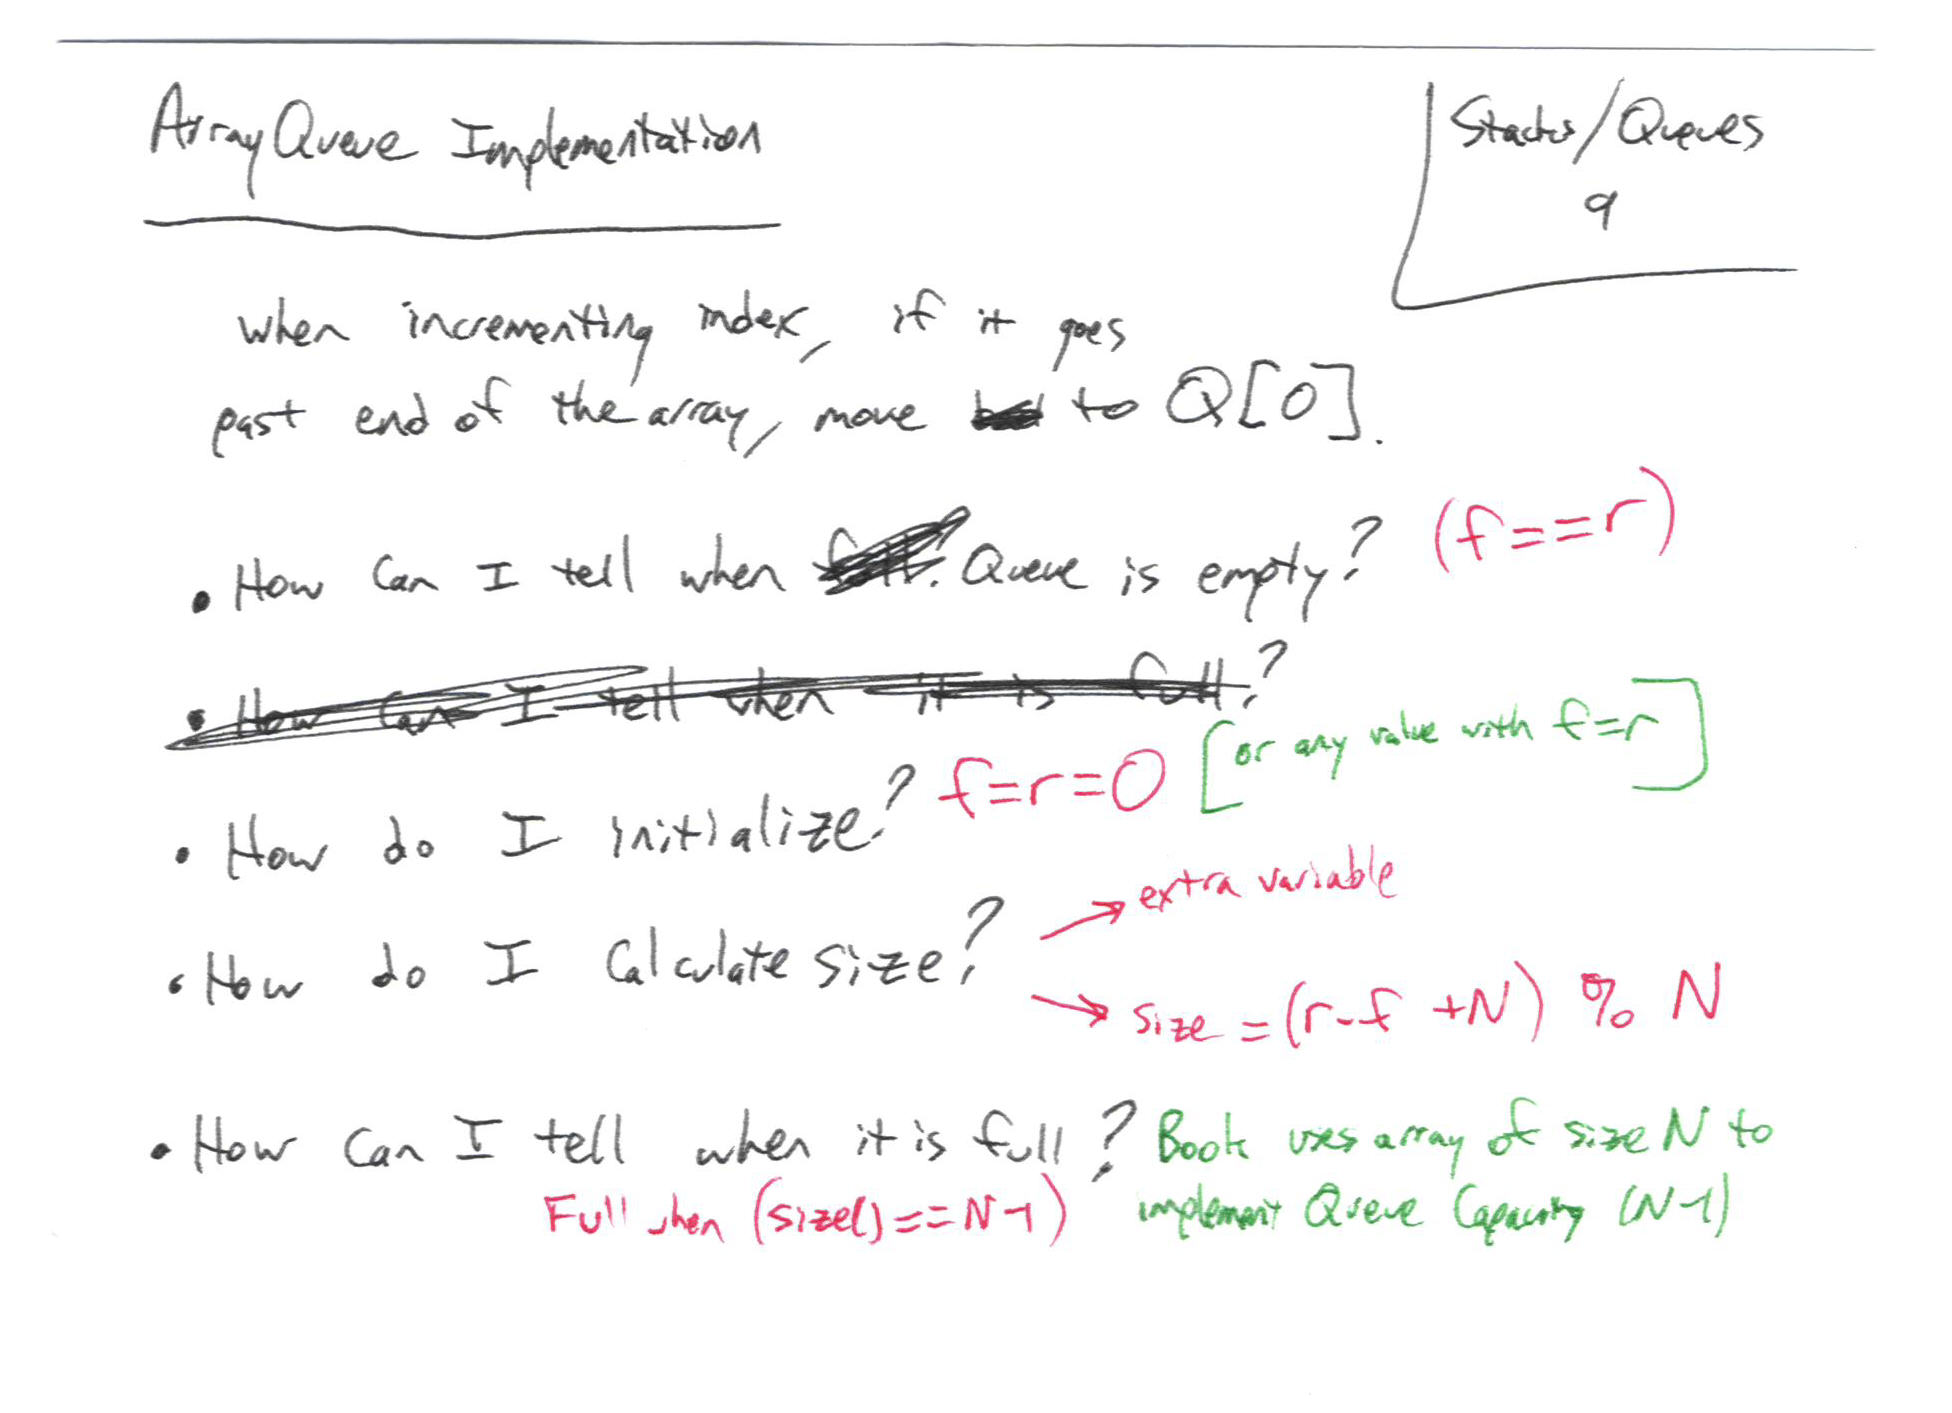 ArrayQueue Implementation
Stacks/Queues
9
when incrementing index, if it goes
past end of the array, move to Q[0].
• How Can I tell when Queue is empty? (f==r)
• How Can I tell when it is full?
• How do I initialize? f=r=0 [or any value with f=r]
• How do I Calculate size?
→ extra variable
→ size = (r-f +N) % N
• How Can I tell when it is full? Book uses array of size N to
Full when (size()==N-1) implement Queue Capacity (N-1)